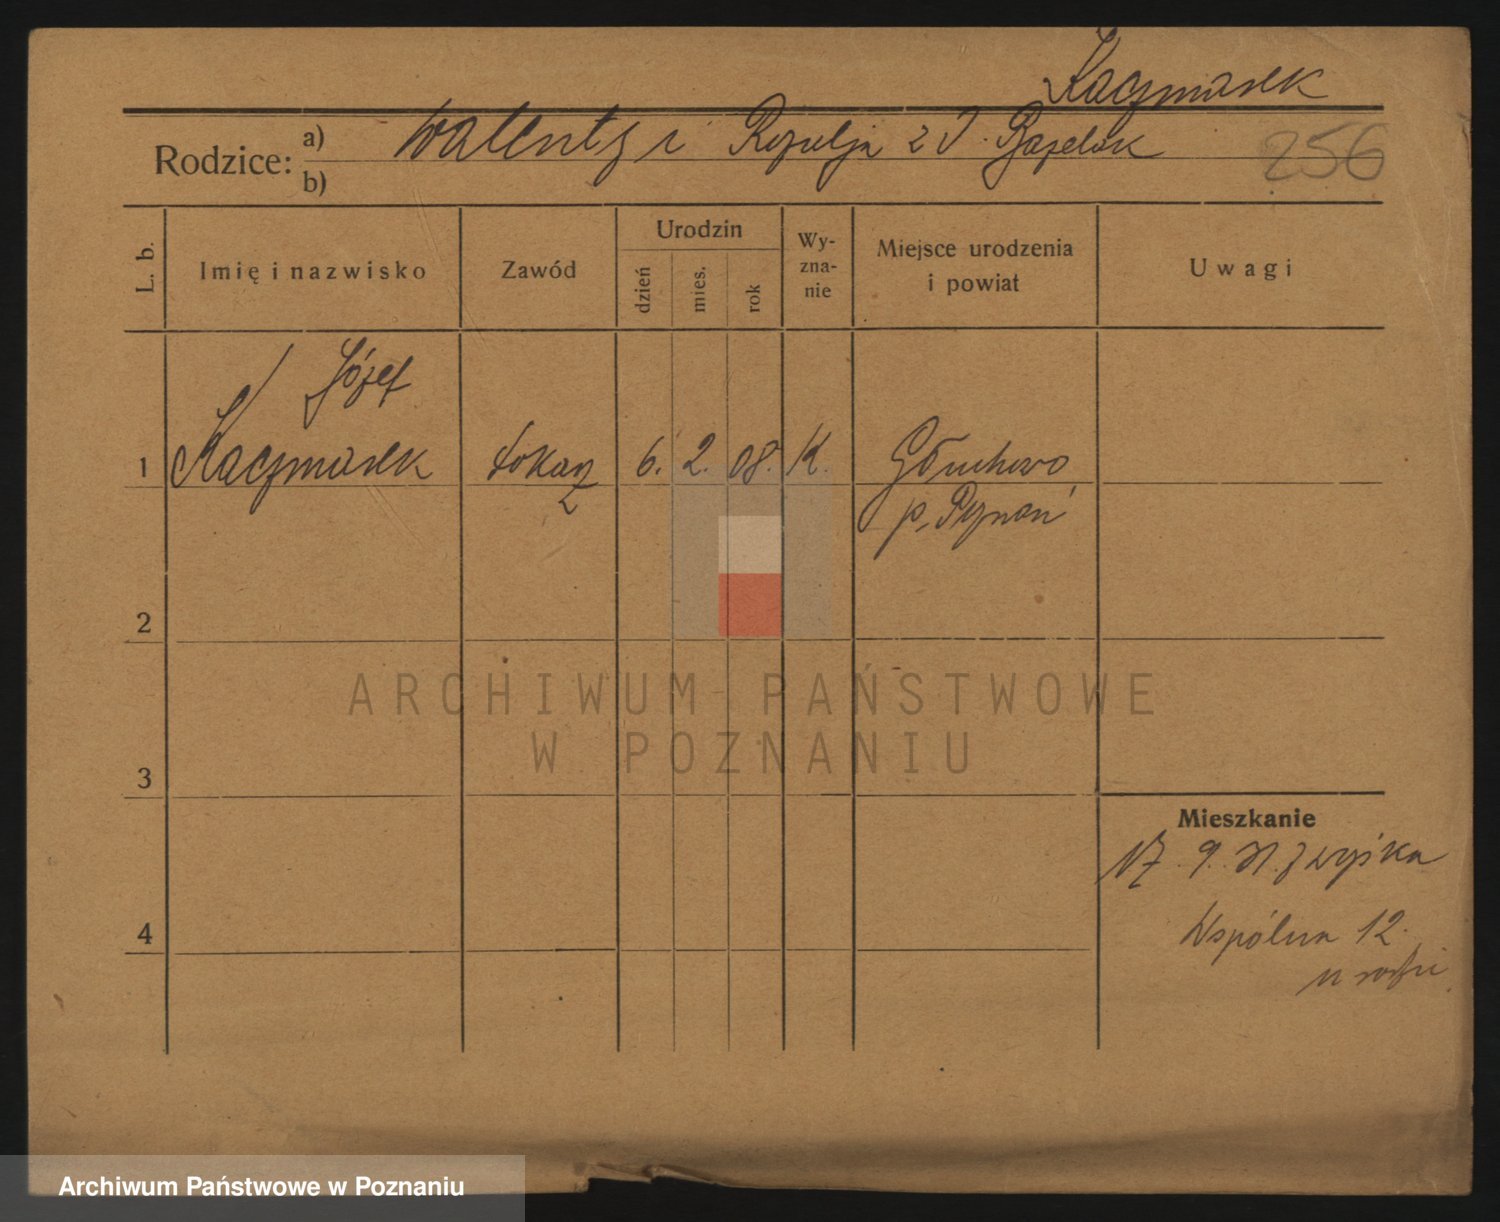 Kaczmarek
Rodzice: a) Walenty i Rozalja z d.
b)
256
L. b.
Imię i nazwisko
Zawód
Urodzin
dzień
mies.
rok
Wy-
zna-
nie
Miejsce urodzenia
i powiat
Uwagi
Józef
1 Kaczmarek tokarz 6. 2. 08. K. Głuchowo
p. Poznań
2
ARCHIWUM PAŃSTWOWE
W POZNANIU
3
Mieszkanie
17. 9.
4
Wspólna 12.
Archiwum Państwowe w Poznaniu